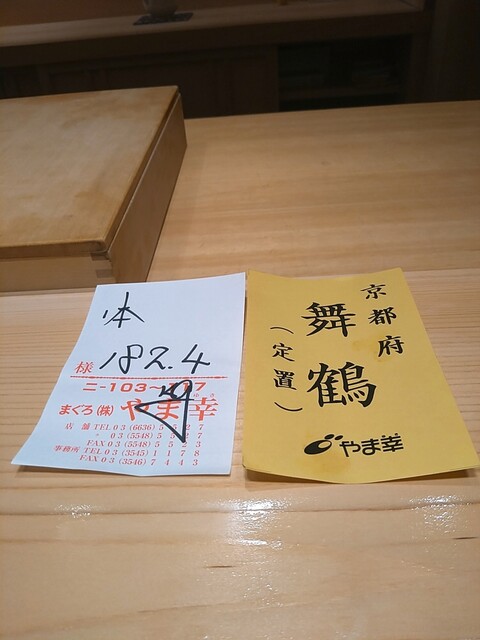 体
様 182.4
ニ-103~107
まぐろ(株)やま幸
店舗 TEL 03 (6636) 5527
〃 03 (5548) 5527
FAX 03 (5548) 5523
事務所 TEL 03 (3545) 1178
FAX 03 (3546) 7443
京都府
舞鶴
(定置)
やま幸